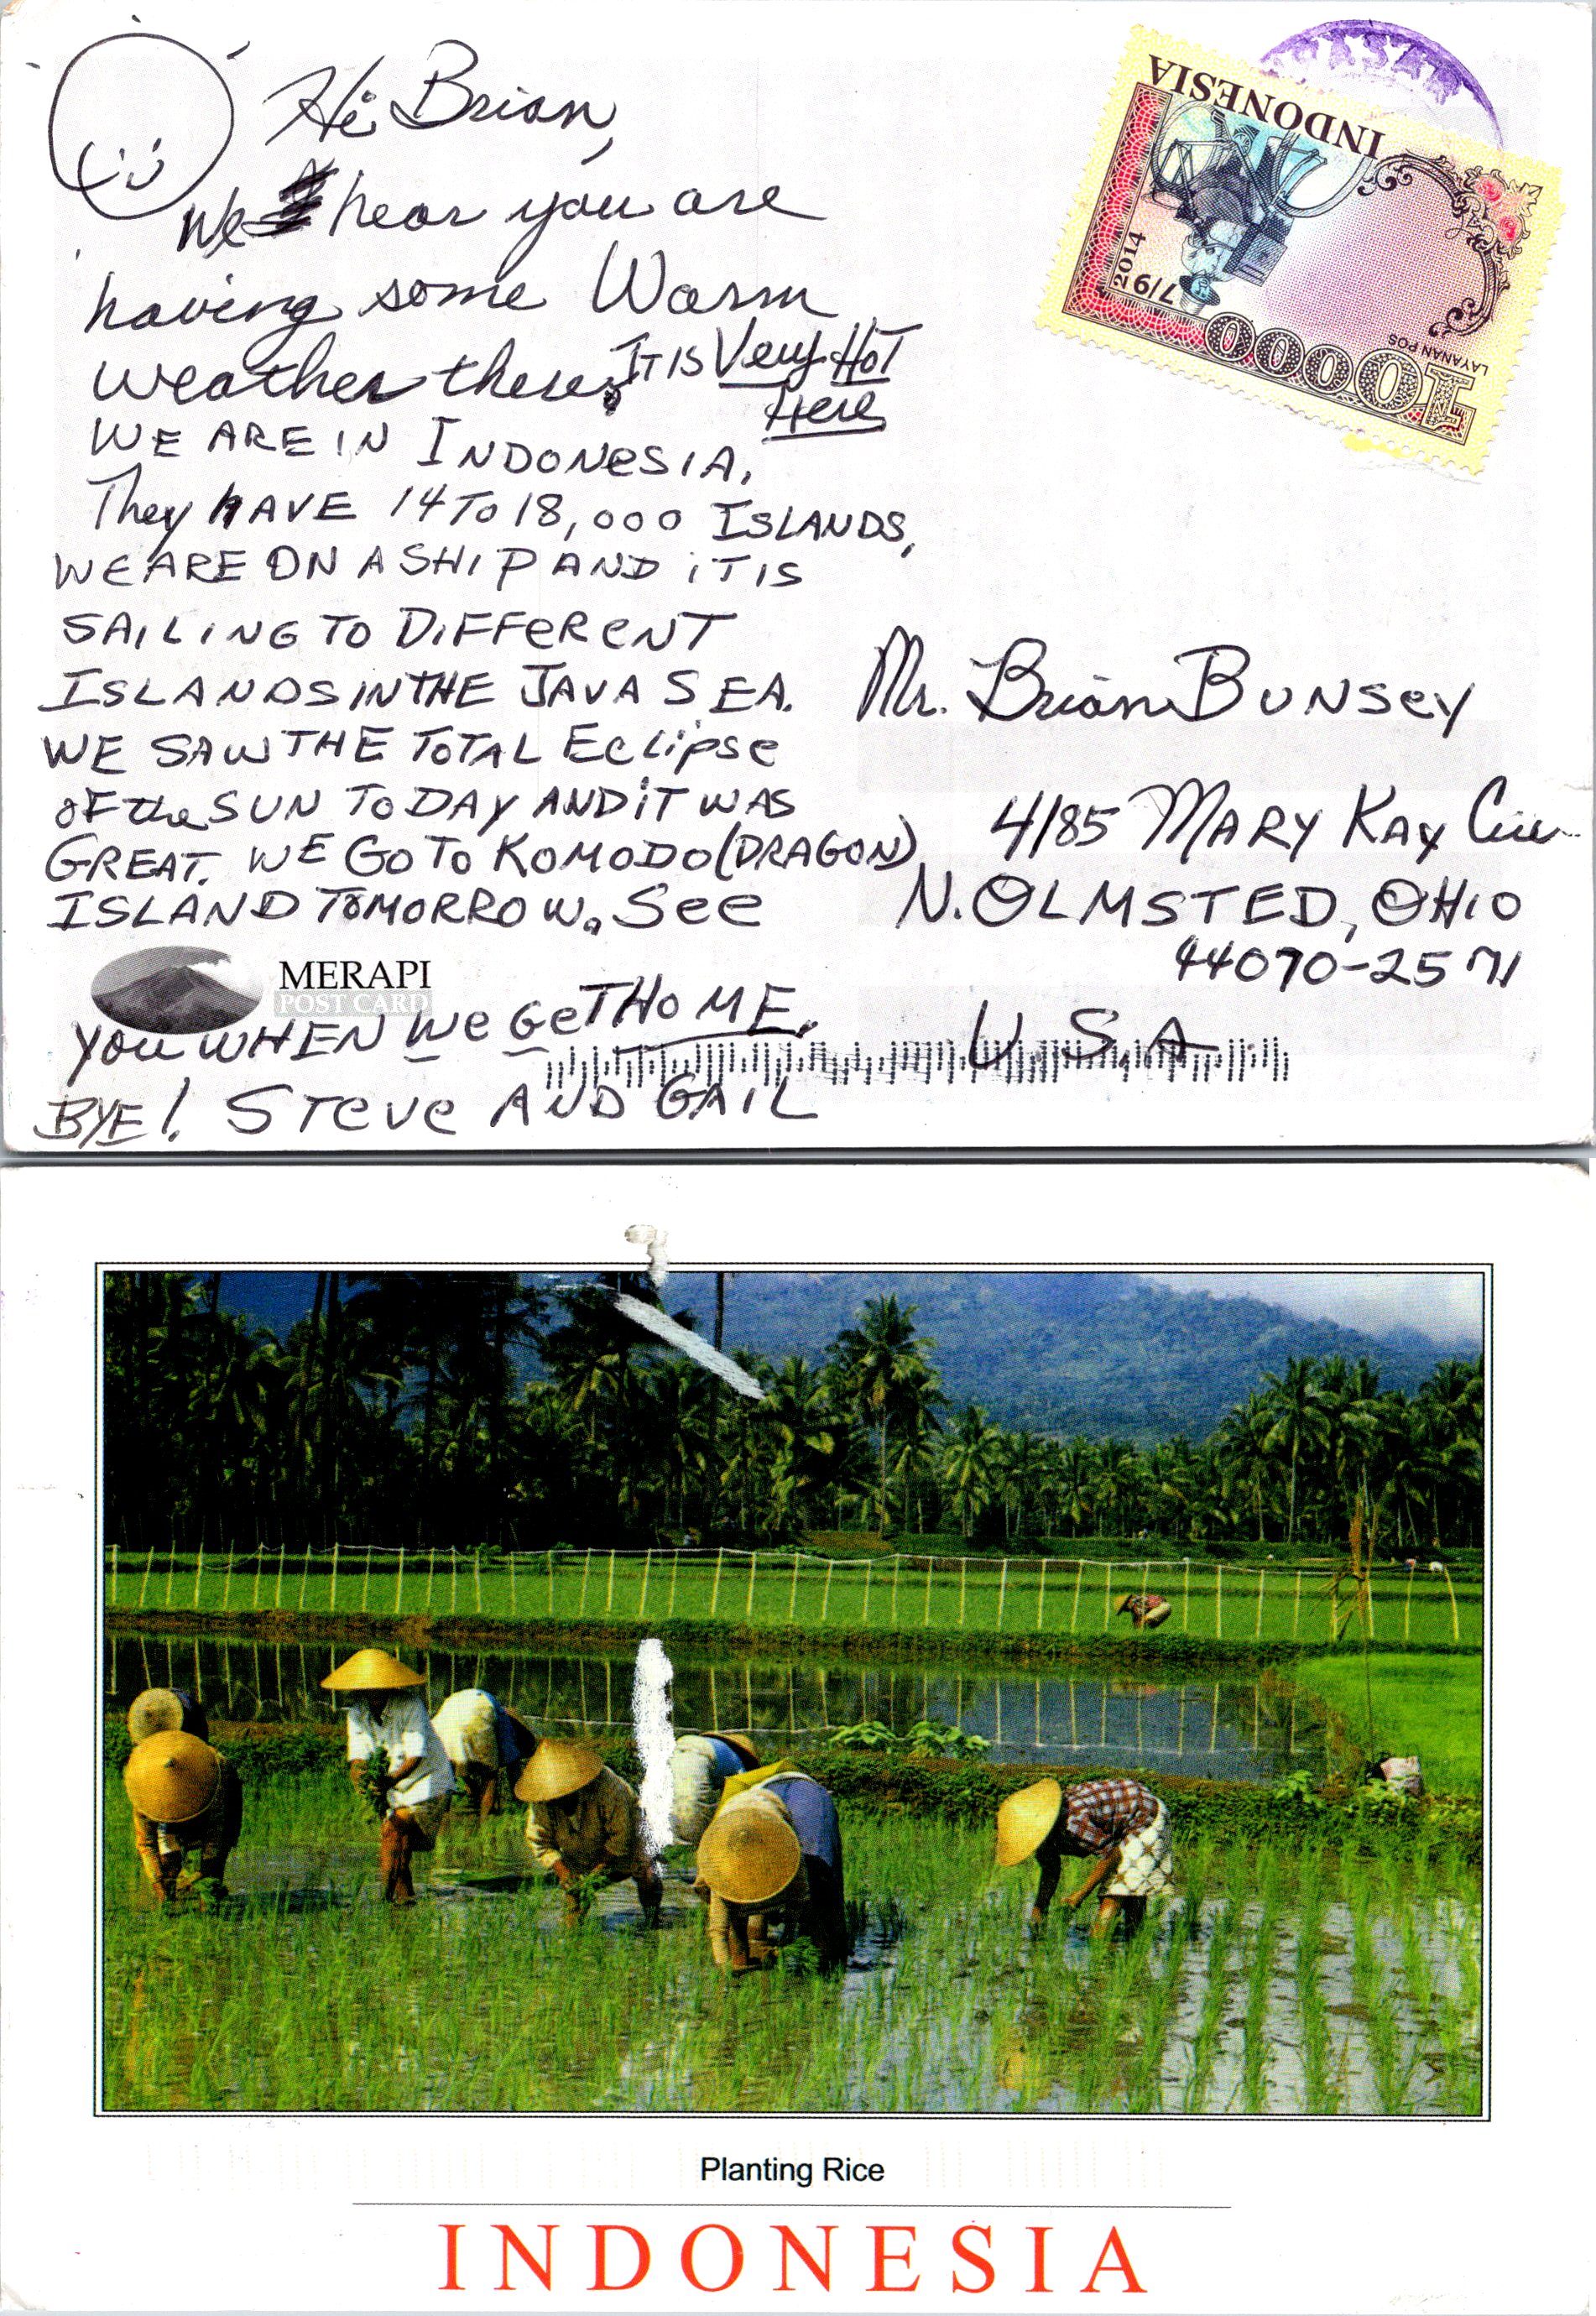 Hi Brian,
We hear you are
having some Warm
weather there. IT IS Very HOT
Here
WE ARE IN INDONESIA.
They HAVE 14 TO 18,000 ISLANDS,
WE ARE ON A SHIP AND iT IS
SAILING TO DIFFERENT
ISLANDS IN THE JAVA SEA.
WE SAW THE TOTAL Eclipse
OF the SUN TODAY AND iT WAS
GREAT. WE GO TO KOMODO (DRAGON)
ISLAND TOMORROW. See
YOU WHEN We GeT HOME.
BYE! STeve AND GAIL
MERAPI
POST CARD
INDONESIA
2014
7/9
10000
LAYANAN POS
Mr. Brian BUNSEY
4185 MARY KAY Cir
N. OLMSTED, OHIO
44070-2571
U.S.A
Planting Rice
INDONESIA